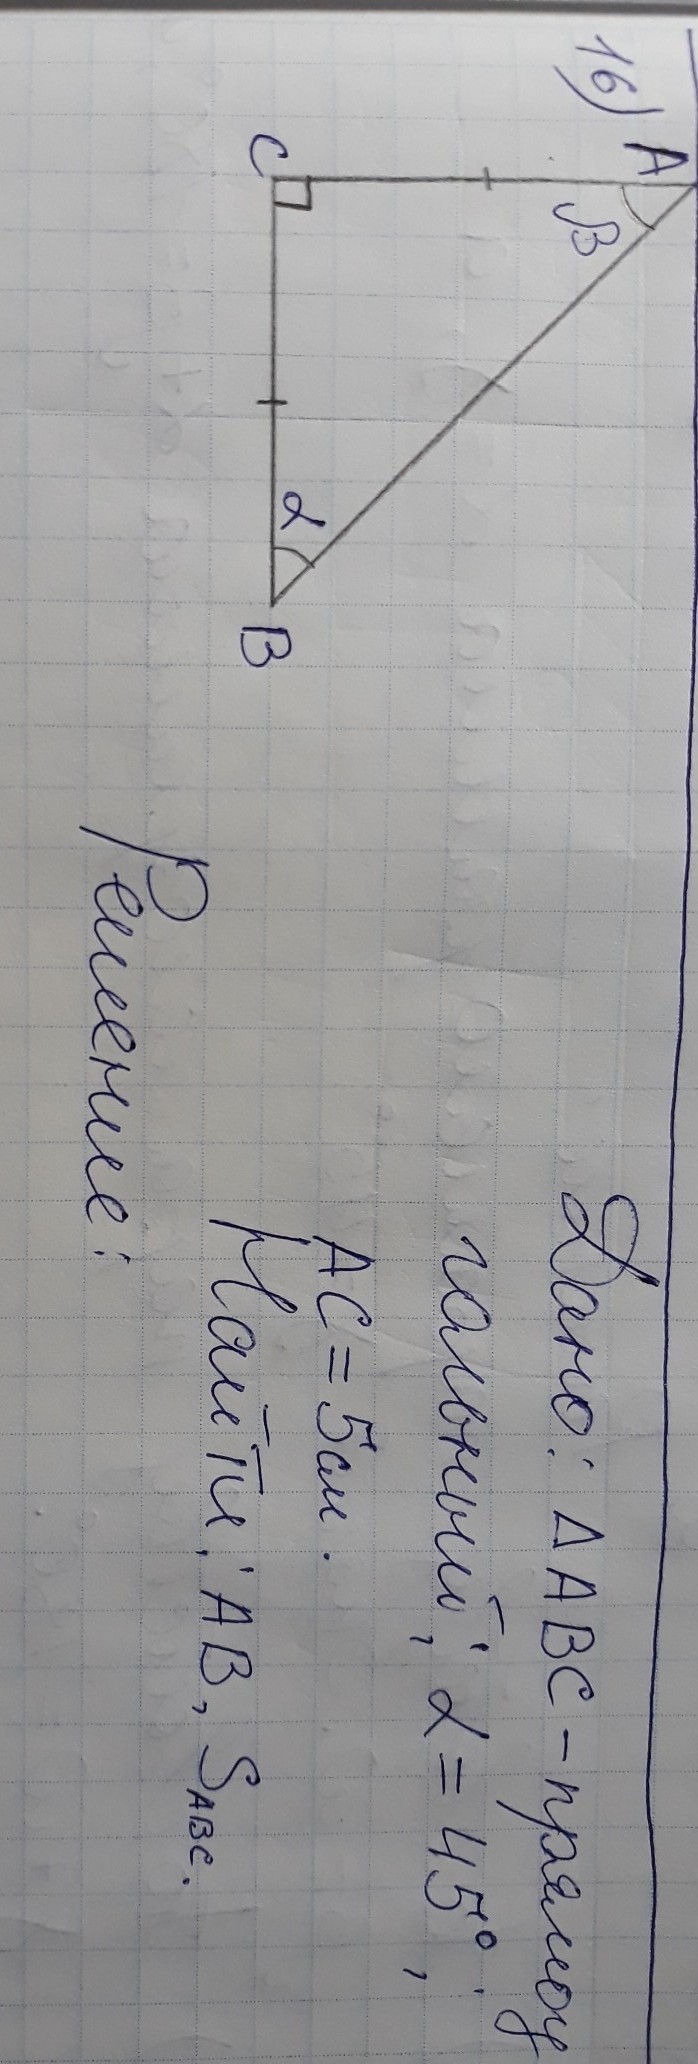 16)
A
β
C
α
B
Дано: Δ ABC - прямоу
гольный; α = 45°;
AC = 5см.
Найти: AB, S ABC.
Решение: